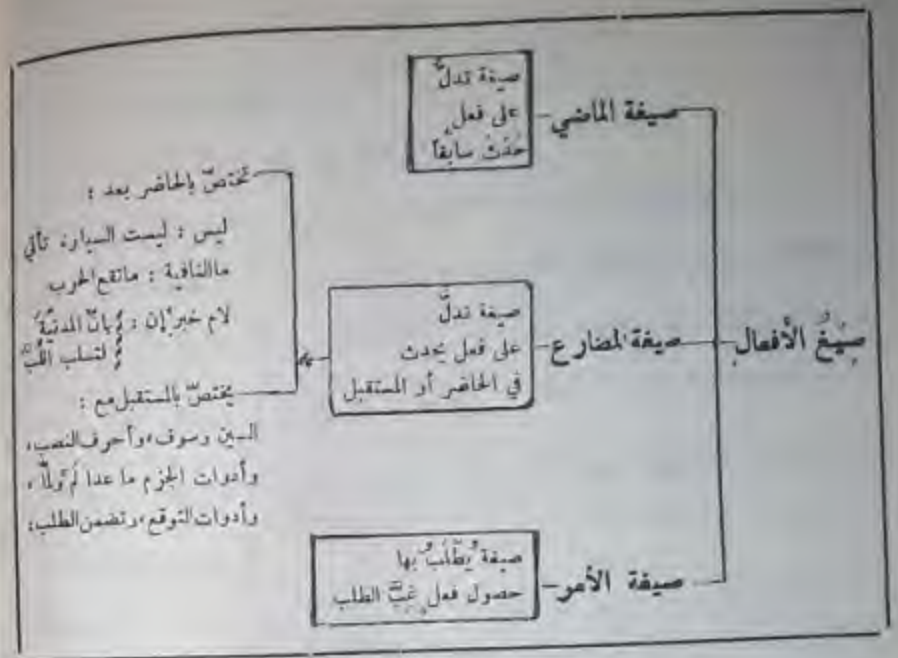 صِيَغُ الأفعال
صيغة الماضي
صيغة تدلّ
على فعلٍ
حَدَثَ سابقاً
صيغة المضارع
صيغة تدلّ
على فعل يحدث
في الحاضر أو المستقبل
تختصّ بالحاضر بعد :
ليس : ليست السيارة تأتي
ما النافية : ما تقع الحرب
لام خبر إن : إنّ المدنيّةَ
لتسلب اللُّبَّ
يختصّ بالمستقبل مع :
السين وسوف، وأحرف النصب،
وأدوات الجزم ما عدا لم ولمّا،
وأدوات التوقع، وتضمن الطلب؛
صيغة الأمر
صيغة يُطلَبُ بها
حصول فعلٍ غِبَّ الطلب